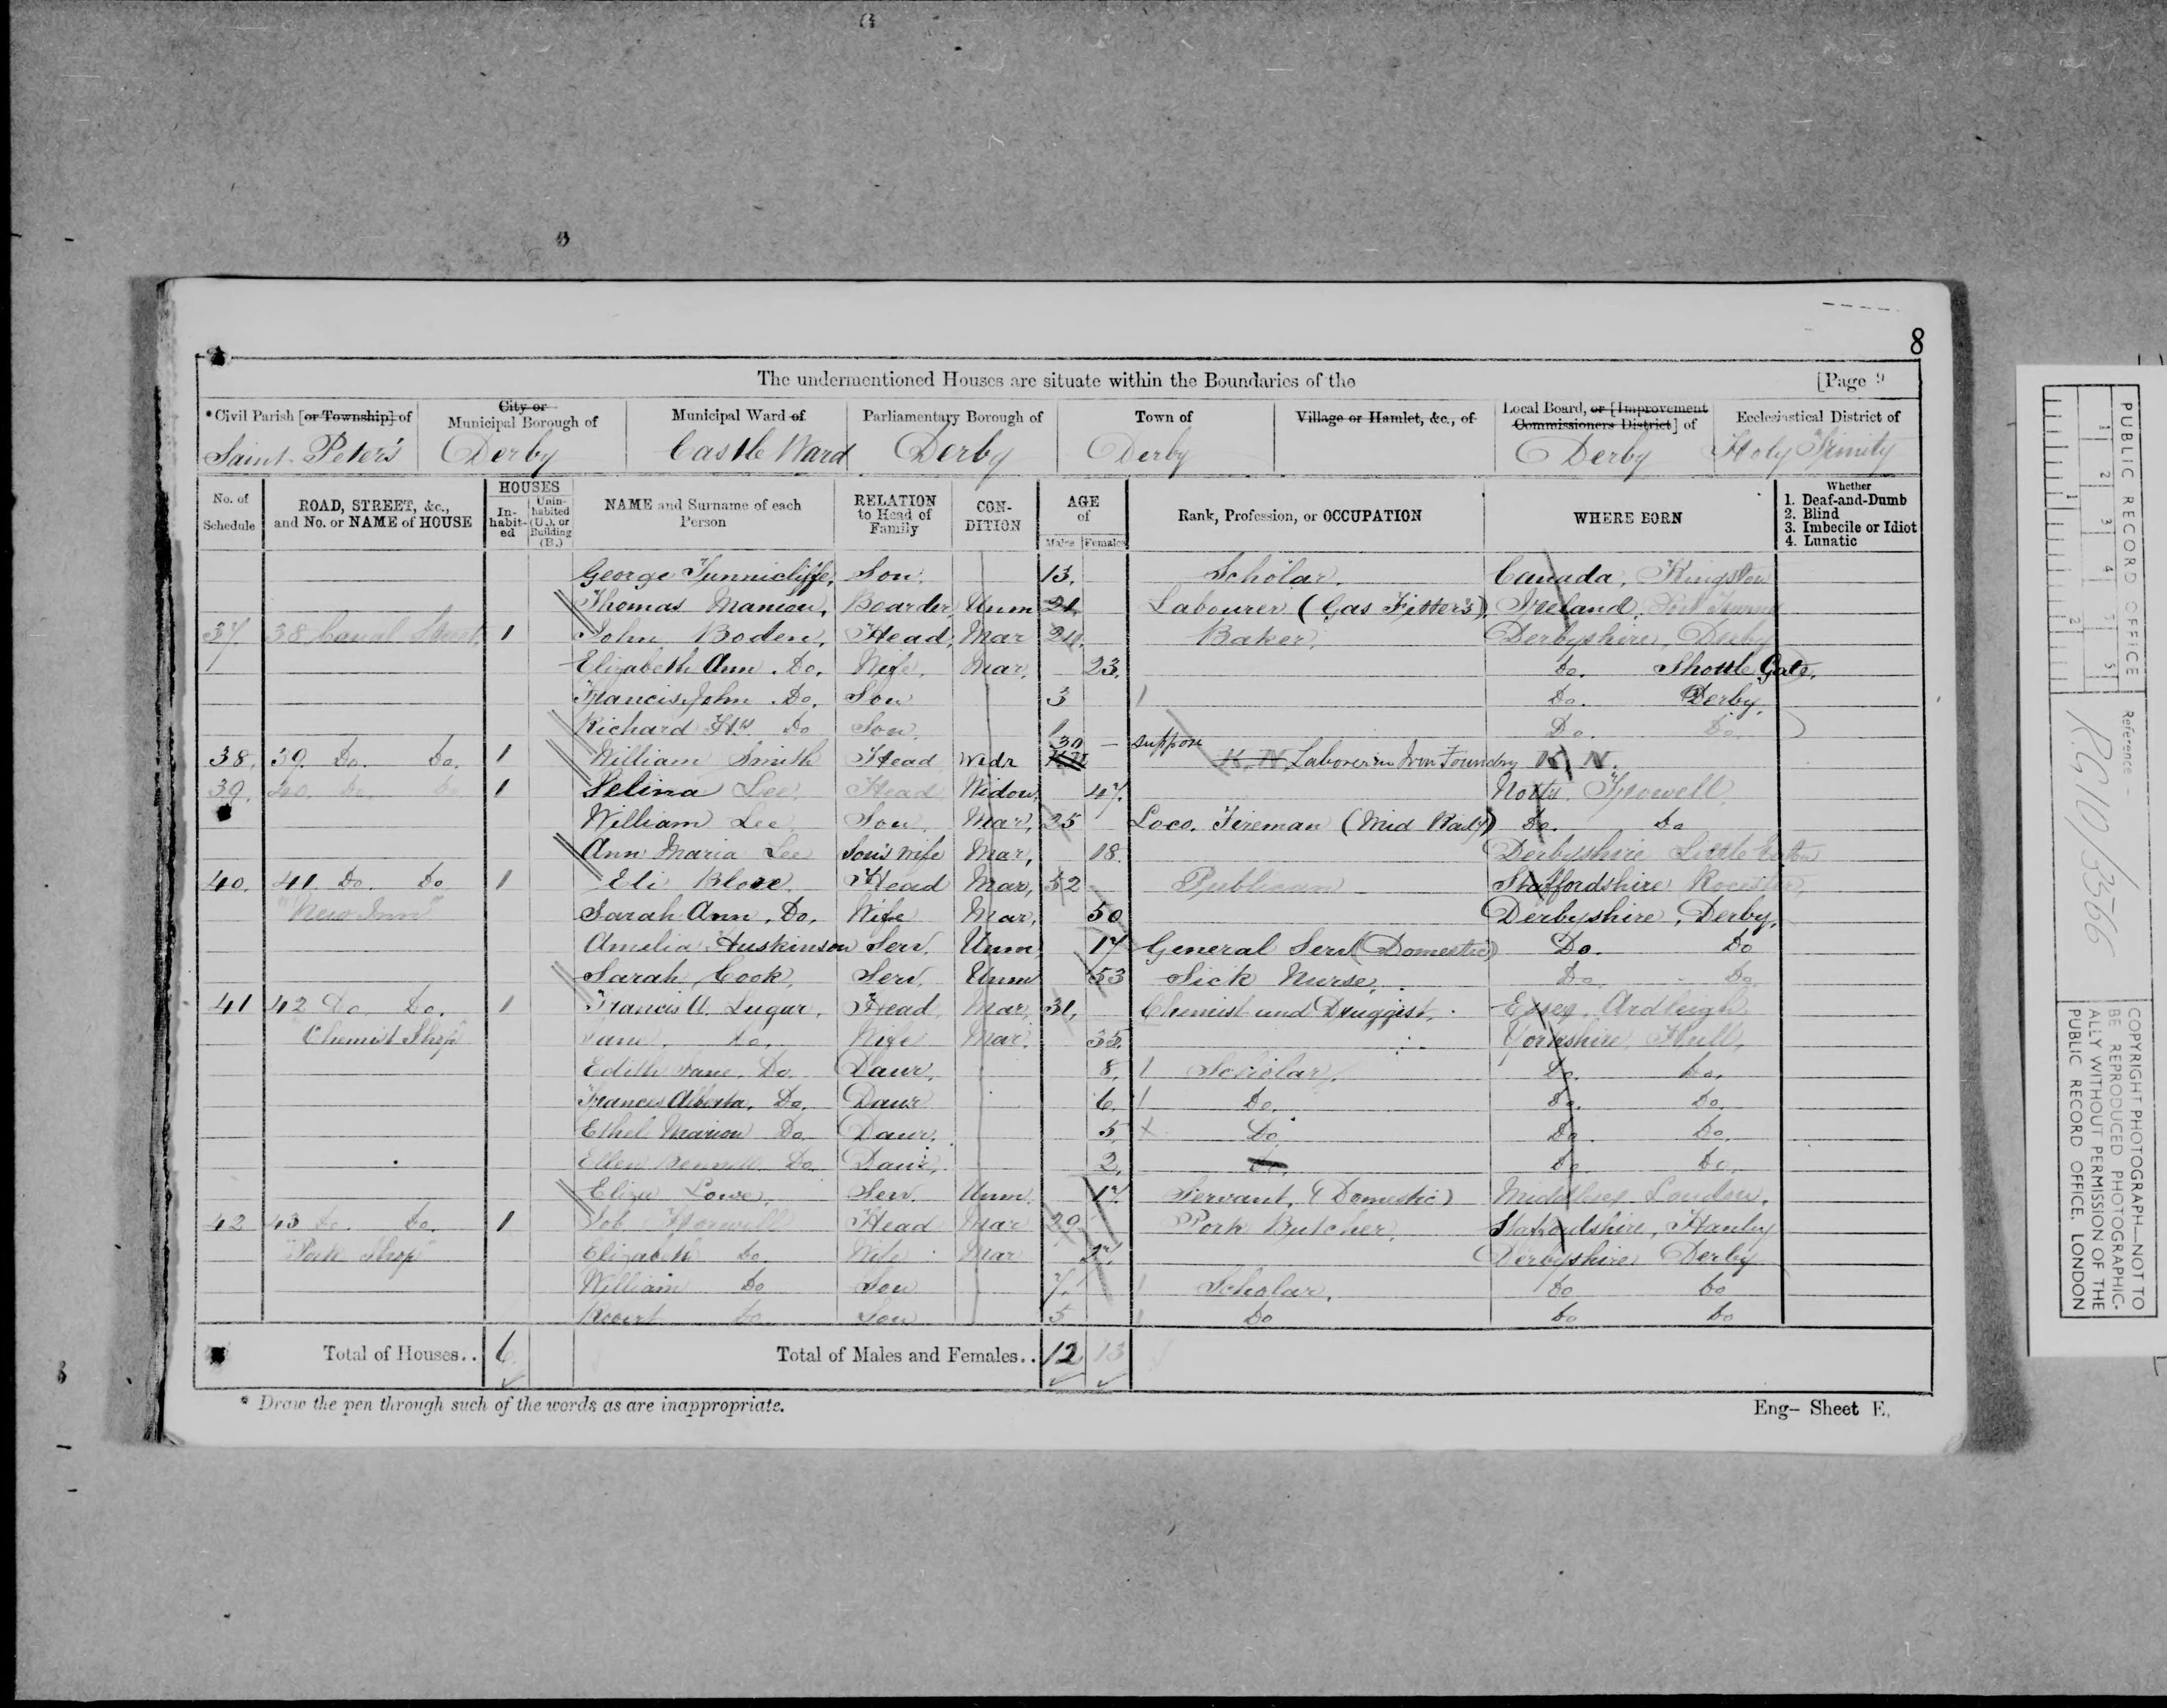 8
The undermentioned Houses are situate within the Boundaries of the [Page 9
*Civil Parish [or Township] of
City or Municipal Borough of
Municipal Ward of
Parliamentary Borough of
Town of
Village or Hamlet, &c., of
Local Board, or [Improvement Commissioners District] of
Ecclesiastical District of
Saint Peter's Derby Castle Ward Derby Derby Derby Holy Trinity
No. of Schedule
ROAD, STREET, &c., and No. or NAME of HOUSE
HOUSES
In-habit-ed
Unin-habited (U.), or Building (B.)
NAME and Surname of each Person
RELATION to Head of Family
CON-DITION
AGE of
Males Females
Rank, Profession, or OCCUPATION
WHERE BORN
Whether
1. Deaf-and-Dumb
2. Blind
3. Imbecile or Idiot
4. Lunatic
George Tunnicliffe, Son. 13. Scholar. Canada, Kingston
Thomas Manion, Boarder Unm 21 Labourer (Gas Fitter's) Ireland,
37 38 Canal Street, 1 John Boden, Head, Mar 24. Baker, Derbyshire, Derby
Elizabeth Ann. Do. Wife. Mar. 23. Do. Shottle Gate.
Francis John. Do. Son 3 Do. Derby.
Richard Do Son. Do. Do.
38. 39. Do. Do. 1 William Smith Head Widr 30 suppose K. N. Laborer in Iron Foundry K. N.
39. 40. Do. Do 1 Selina Lee. Head Widow. 47. Notts. Trowell.
William Lee Son. Mar, 25 Loco. Fireman (Mid Raily) Do. Do
Ann Maria Lee Son's Wife Mar, 18. Derbyshire Little Eaton
40. 41. Do. Do. 1 Eli Blore. Head Mar, 52 Publican Staffordshire Rocester,
"New Inn" Sarah Ann. Do. Wife Mar. 50 Derbyshire, Derby.
Amelia Huskinson Serv. Unm 17 General Serv (Domestic) Do. Do
Sarah Cook, Serv. Unm 53 Sick Nurse. Do. Do.
41 42 Do. Do. 1 Francis A. Lugar, Head, Mar, 31, Chemist and Druggist. Essex. Ardleigh
"Chemist Shop" Jane. Do. Wife Mar. 35. Yorkshire, Hull.
Edith Jane. Do. Daur. 8. Scholar. Do. Do.
Frances Alberta. Do. Daur 6. Do. Do. Do.
Ethel Marion Do. Daur. 5 Do. Do. Do.
Ellen Do. Daur. 2. Do. Do. Do.
Eliza Lowe, Serv. Unm. 17. Servant. (Domestic) Middlesex London.
42. 43 Do. Do. 1 Job Head Mar 29 Pork Butcher, Staffordshire, Hanley
"Pork Shop" Elizabeth Do. Wife Mar 27. Derbyshire Derby
William Do Son 7. Scholar. Do Do
Robert Do. Son 5 Do Do Do
Total of Houses.. 6 Total of Males and Females.. 12 13
* Draw the pen through such of the words as are inappropriate.
Eng- Sheet E.
PUBLIC RECORD OFFICE
1 2 3 4 5
1 2
Reference -
R.G.10/3566
COPYRIGHT PHOTOGRAPH—NOT TO
BE REPRODUCED PHOTOGRAPHIC-
ALLY WITHOUT PERMISSION OF THE
PUBLIC RECORD OFFICE, LONDON